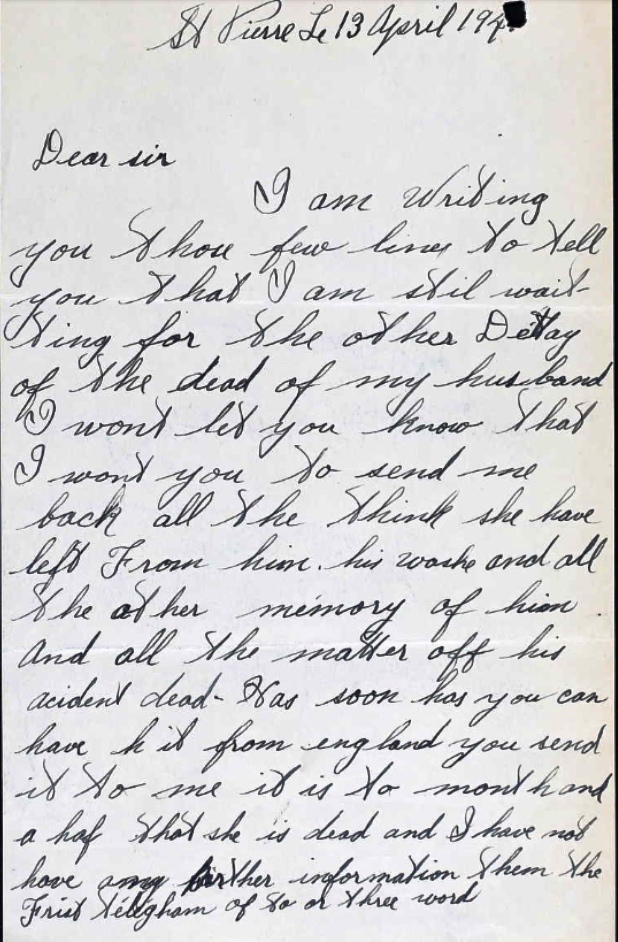 St Pierre Le 13 April 194
Dear sir
I am Writing
you those few lines to tell
you that I am stil wait-
ting for the other Detay
of the dead of my husband
I wont let you know that
I wont you to send me
back all the think she have
left From him. his washe and all
the other memory of him.
And all the matter off his
acident dead - Has soon has you can
have h it from england you send
it to me it is to month and
a haf that she is dead and I have not
have any further information them the
Frist télegham of to or three word